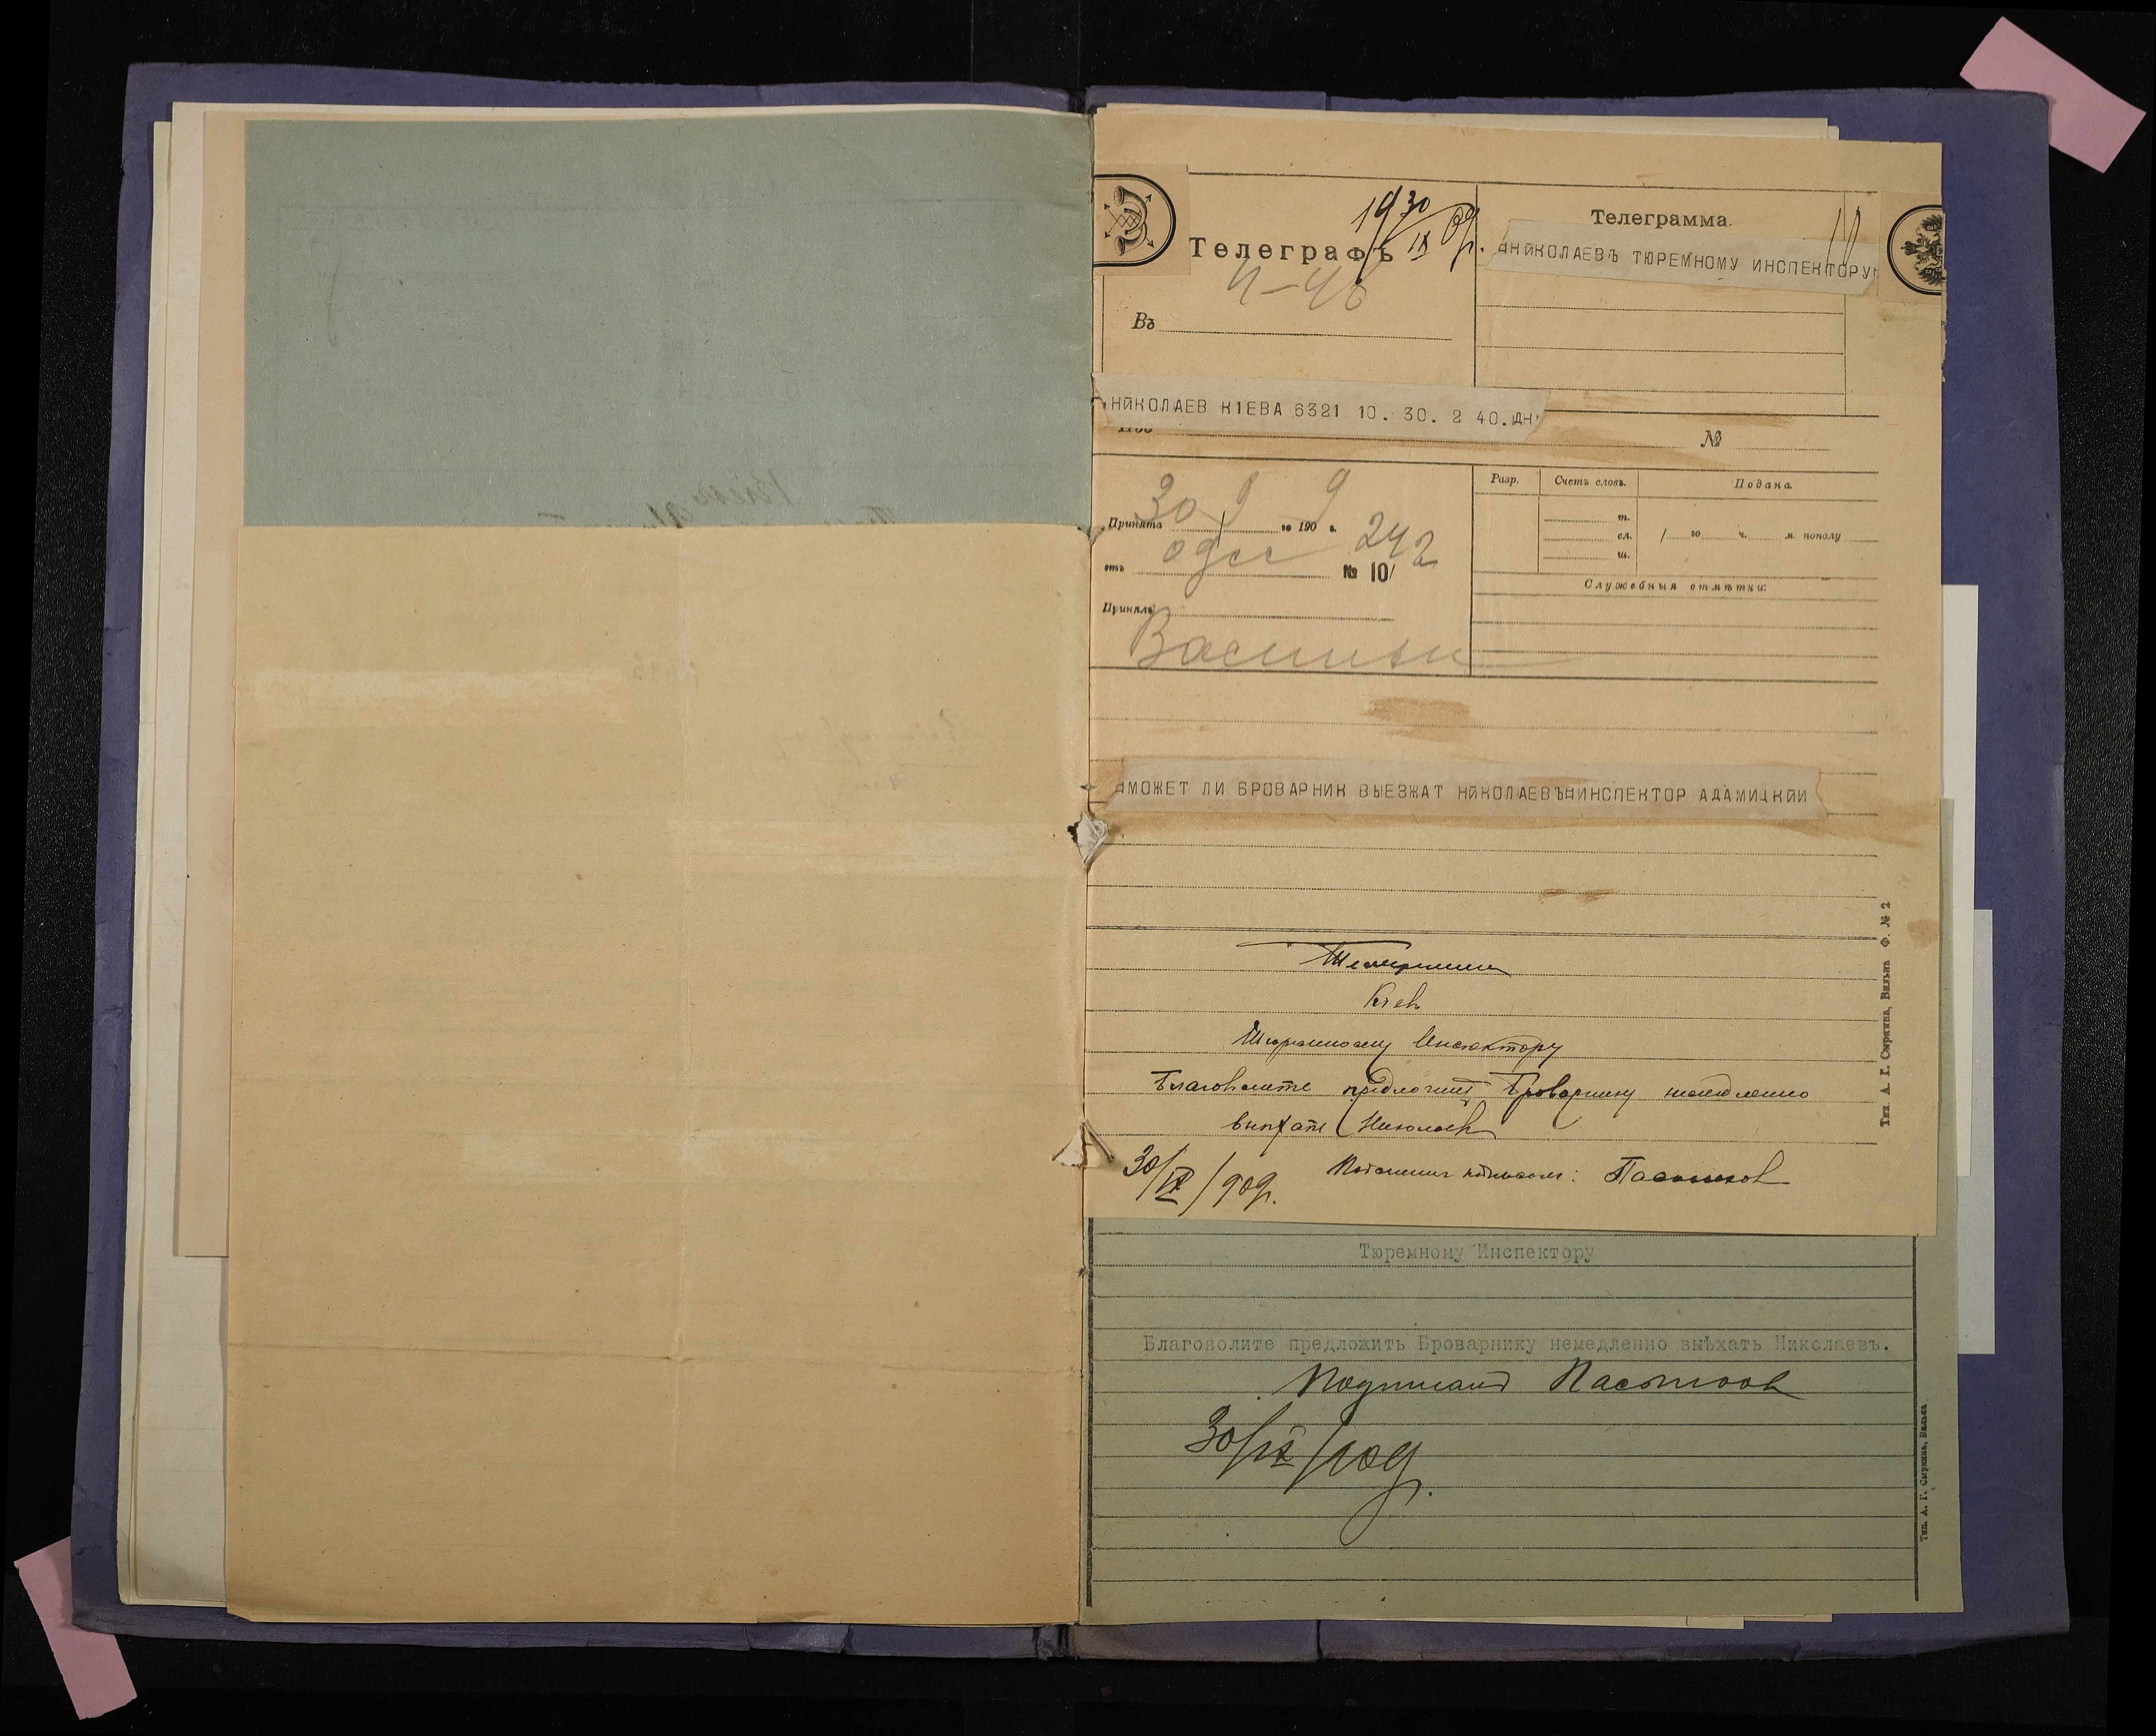 19 30/IX 09 г.
Телеграфъ
Въ
Телеграмма.
НИКОЛАЕВЪ ТЮРЕМНОМУ ИНСПЕКТОРУ
НИКОЛАЕВ КІЕВА 6321 10. 30. 2 40.ДН
№
Принята 30 9 го 190 9 г.
отъ одес № 10/ 242
Принялъ
Разр.
Счетъ словъ.
Подача
т.
ел.
ш.
/ го ч. м. пополу
Служебныя отмѣтки:
МОЖЕТ ЛИ БРОВАРНИК ВЫЕЗЖАТ НИКОЛАЕВЪ ИНСПЕКТОР АДАМИЦКИЙ
Кіев
Тюремному Инспектору
Благоволите предложить Броварнику немедленно
выѣхать Николаев
30/IX/909г.
Тип. А. Г. Сыркина, Вильна Ф. № 2
Тюремному Инспектору
Благоволите предложить Броварнику немедленно выѣхать Николаевъ.
Подписалъ
30/IX/909г.
Тип. А. Г. Сыркина, Вильна